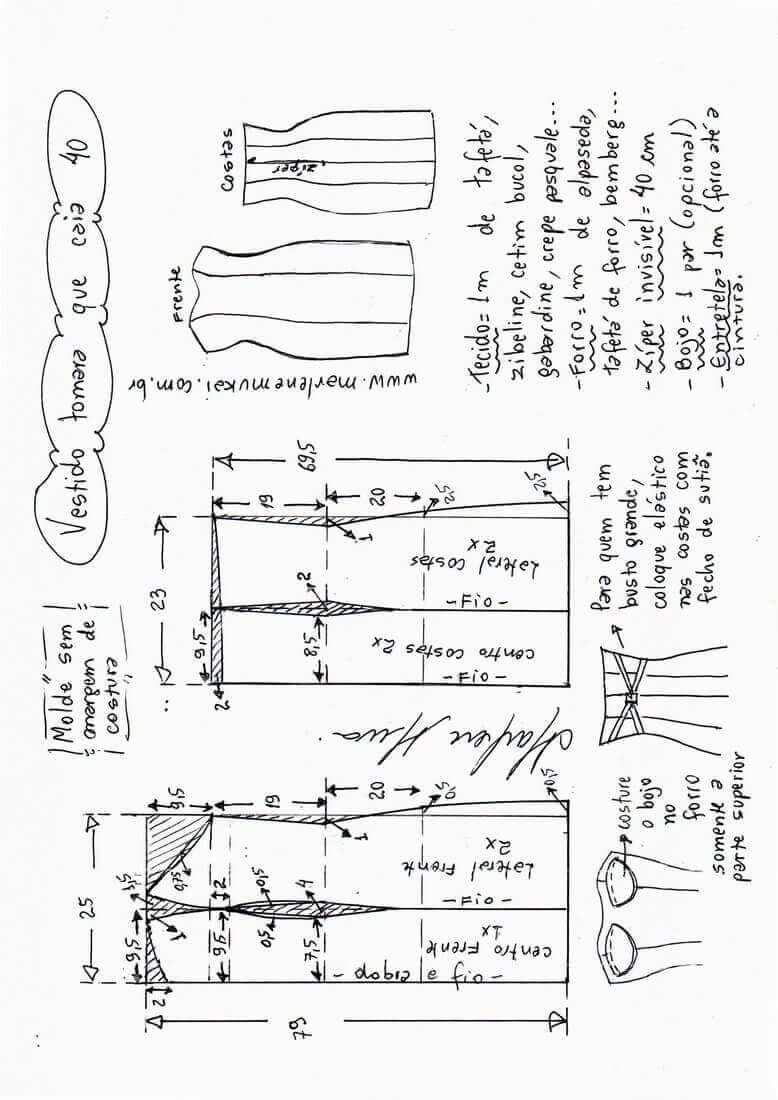 Vestido tomara que caia 40
"Molde sem
margem de
costura"
Frente
Costas
zíper
www.marlenemukai.com.br
25
9,5
1,5
9,5
2
1
0,75
2
9,5
19
0,5
0,5
7,5
4
1
20
0,5
0,5
79
centro Frente
1x
- dobra e fio -
Lateral Frente
2x
- Fio -
23
9,5
2
19
8,5
2
1
20
69,5
centro costas 2x
- Fio -
Lateral Costas
2x
- Fio -
- Tecido = 1m de tafetá,
zibeline, cetim bucol,
gabardine, crepe pasquale...
- Forro = 1m de alpaseda,
tafetá de forro, bemberg...
- Zíper invisível = 40 cm
- Bojo = 1 par (opcional)
- Entretela = 1m (forro até a
cintura.
Para quem tem
busto grande,
coloque elástico
nas costas com
fecho de sutiã.
costure
o bojo
no
forro
somente a
parte superior